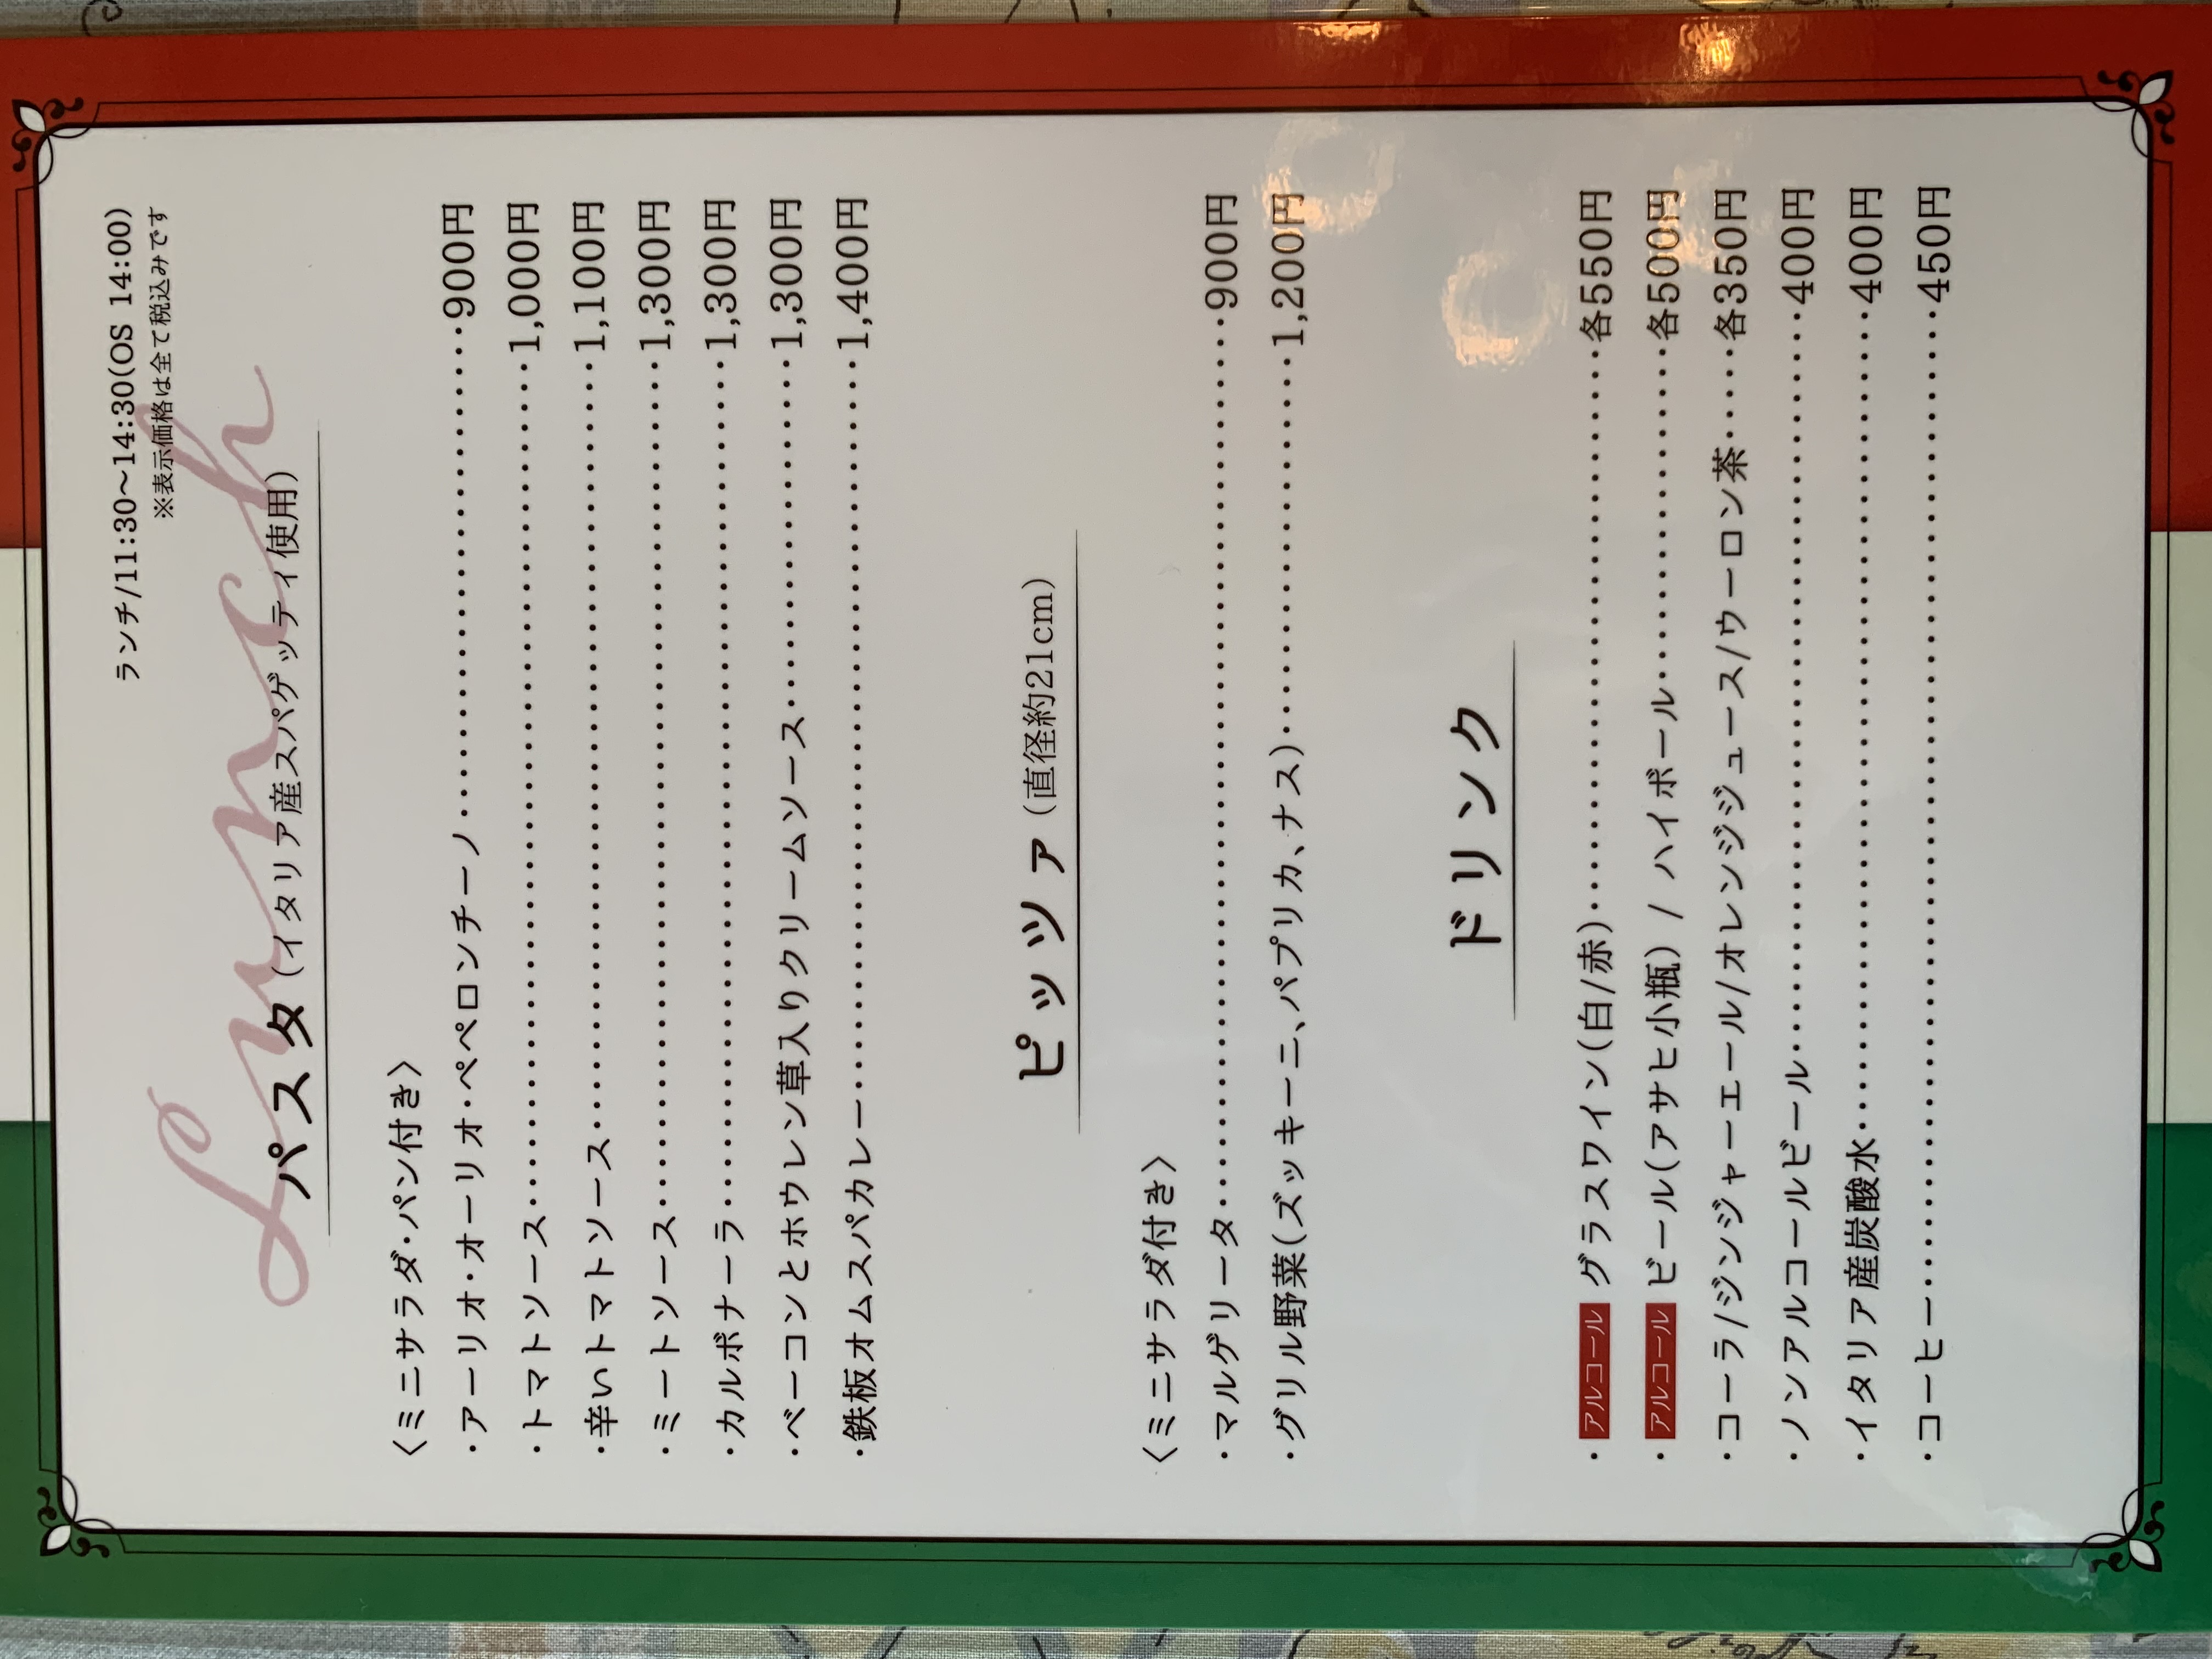 ランチ/11:30～14:30(OS 14:00)
※表示価格は全て税込みです
Lunch
パスタ(イタリア産スパゲッティ使用)
〈ミニサラダ・パン付き〉
・アーリオ・オーリオ・ペペロンチーノ……………………………900円
・トマトソース……………………………1,000円
・辛いトマトソース……………………………1,100円
・ミートソース……………………………1,300円
・カルボナーラ……………………………1,300円
・ベーコンとホウレン草入りクリームソース……………………1,300円
・鉄板オムスパカレー……………………………1,400円
ピッツァ(直径約21cm)
〈ミニサラダ付き〉
・マルゲリータ……………………………900円
・グリル野菜(ズッキーニ、パプリカ、ナス)……………………1,200円
ドリンク
・アルコール グラスワイン(白/赤)……………………………各550円
・アルコール ビール(アサヒ小瓶) / ハイボール……………………各500円
・コーラ/ジンジャーエール/オレンジジュース/ウーロン茶……各350円
・ノンアルコールビール……………………………400円
・イタリア産炭酸水……………………………400円
・コーヒー……………………………450円